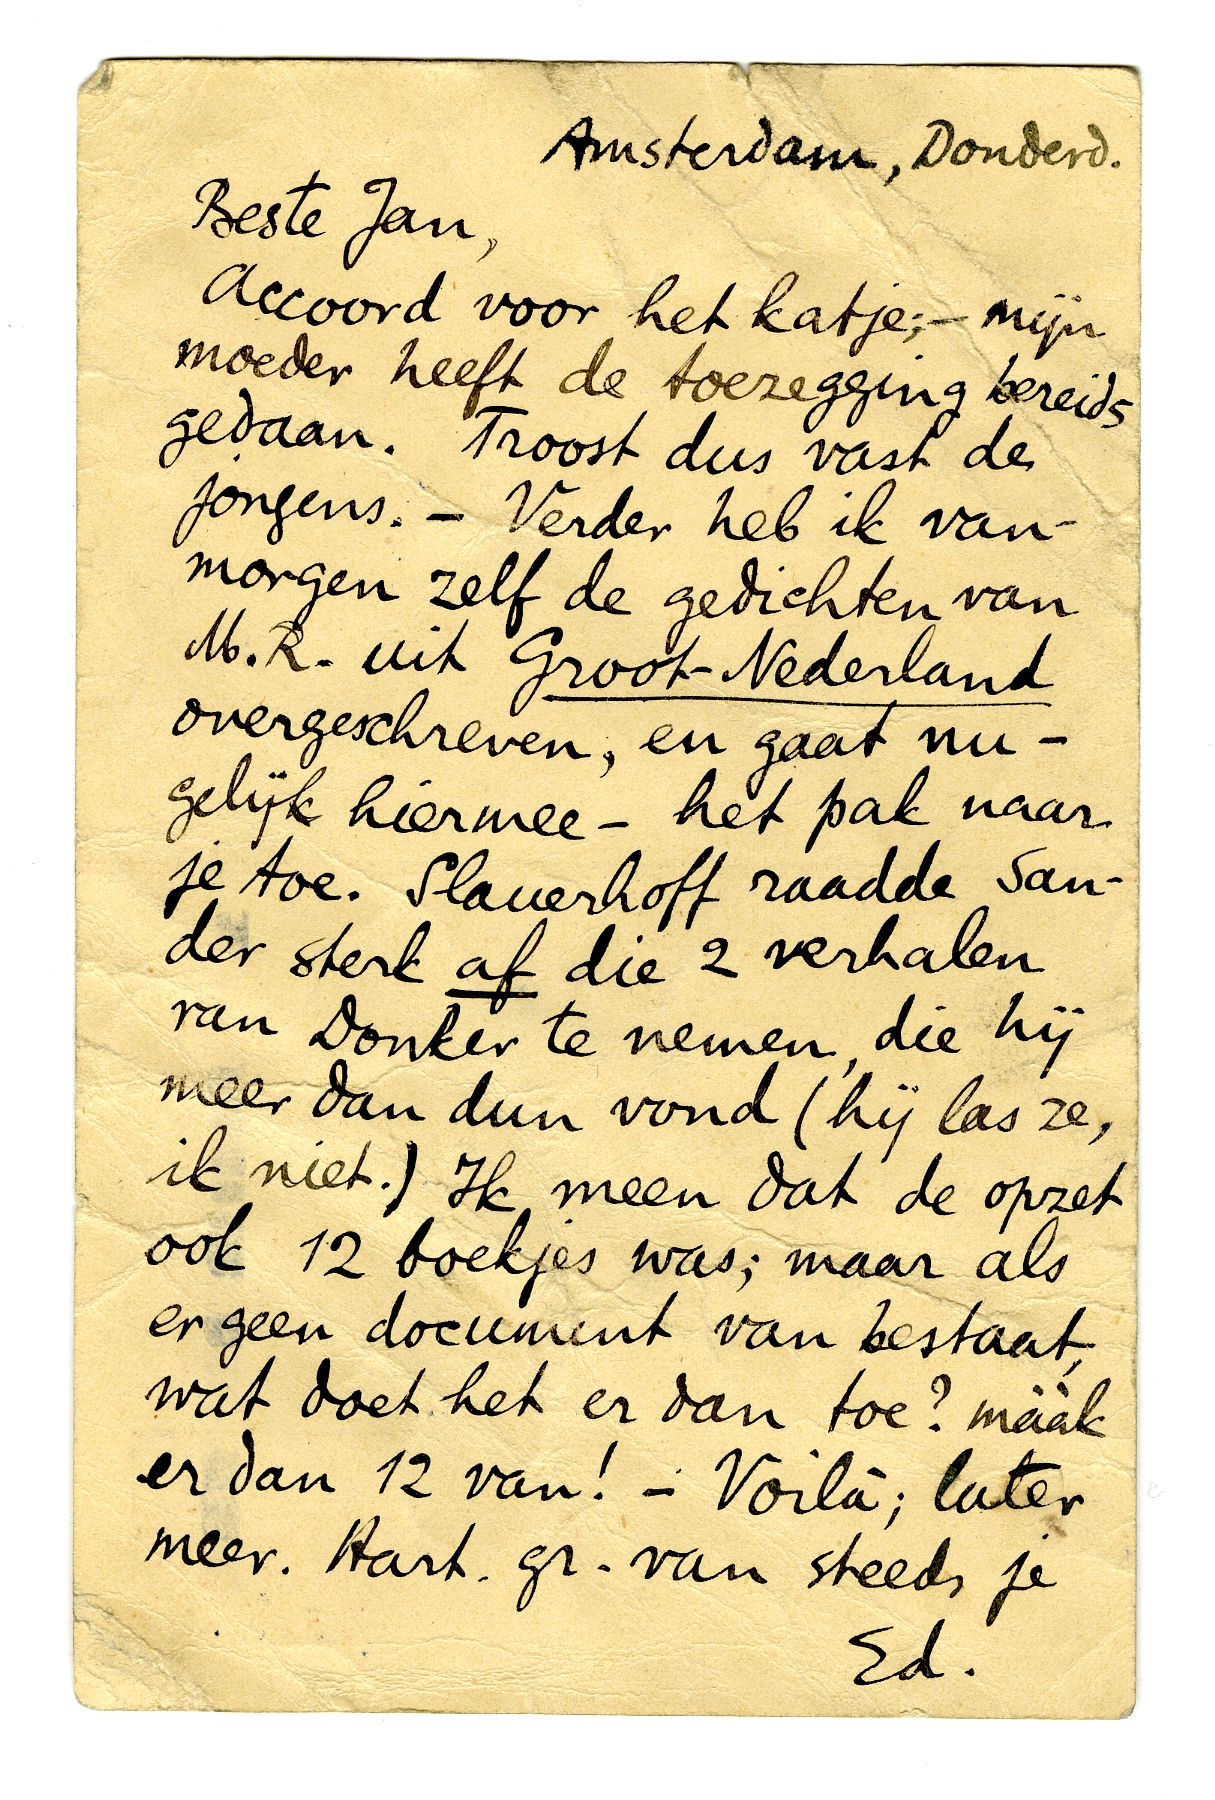 Amsterdam, Donderd.
Beste Jan,
Accoord voor het katje; – mijn
moeder heeft de toezegging bereids
gedaan. Troost dus vast de
jongens. – Verder heb ik van-
morgen zelf de gedichten van
M.R. uit Groot-Nederland
overgeschreven, en gaat nu –
gelijk hiermee – het pak naar
je toe. Slauerhoff raadde San-
der sterk af die 2 verhalen
van Donker te nemen, die hij
meer dan dun vond (hij las ze,
ik niet.) Ik meen dat de opzet
ook 12 boekjes was; maar als
er geen document van bestaat,
wat doet het er dan toe? mààk
er dan 12 van! – Voilà; later
meer. Hart. gr. van steeds je
Ed.